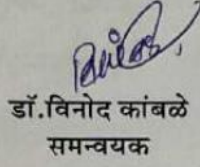 डॉ.विनोद कांबळे
समन्वयक